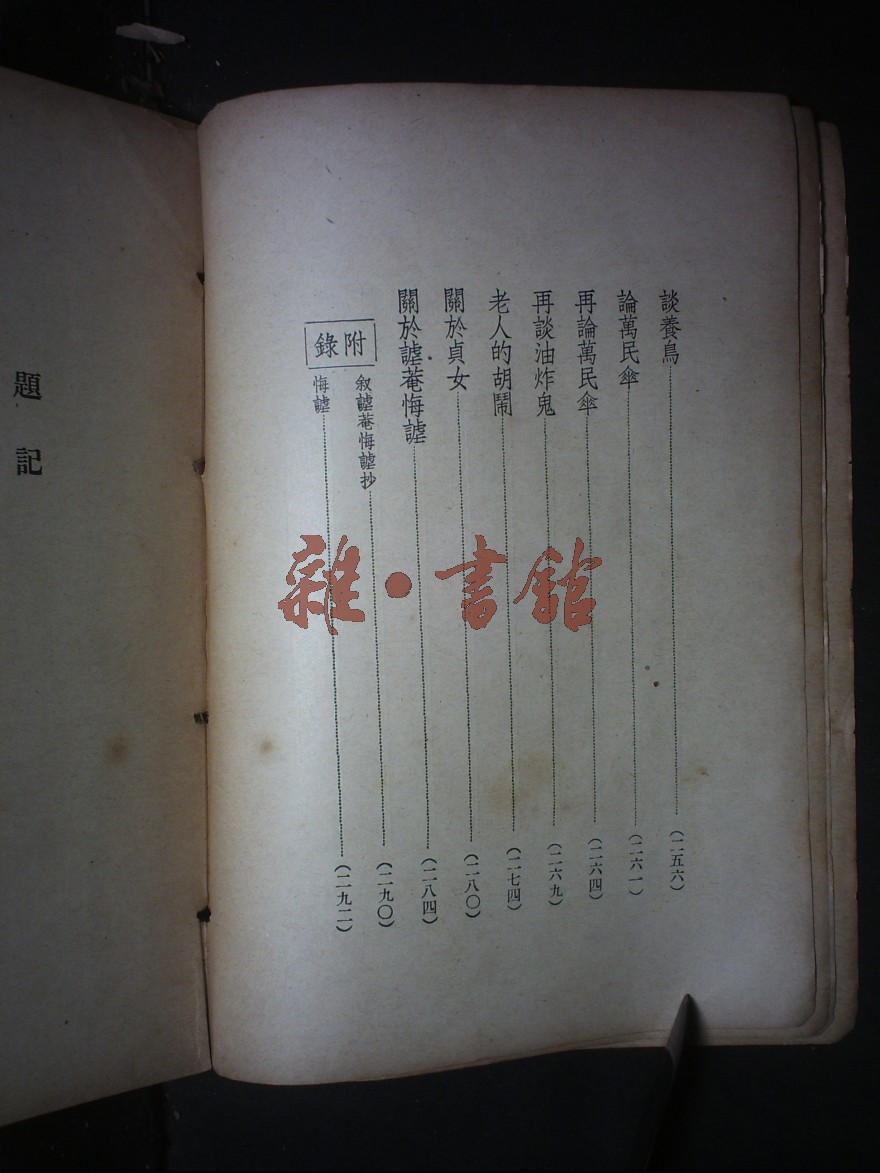 談養鳥………(二五六)
論萬民傘………(二六一)
再論萬民傘………(二六四)
再談油炸鬼………(二六九)
老人的胡鬧………(二七四)
關於貞女………(二八〇)
關於謔菴悔謔………(二八四)
附錄
叙謔菴悔謔抄………(二九〇)
悔謔………(二九二)
題記
雜·書館